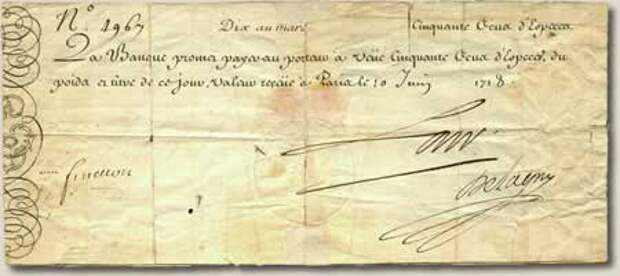 N.º 4967 Dix au marc Cinquante Ecus d'Especes.
La Banque promet payer au porteur à veüe Cinquante Ecus d'Especes, du
poids et titre de ce jour, valeur reçüe à Paris le 10 Juin 1718.
Law
Fenellon
De Lagny